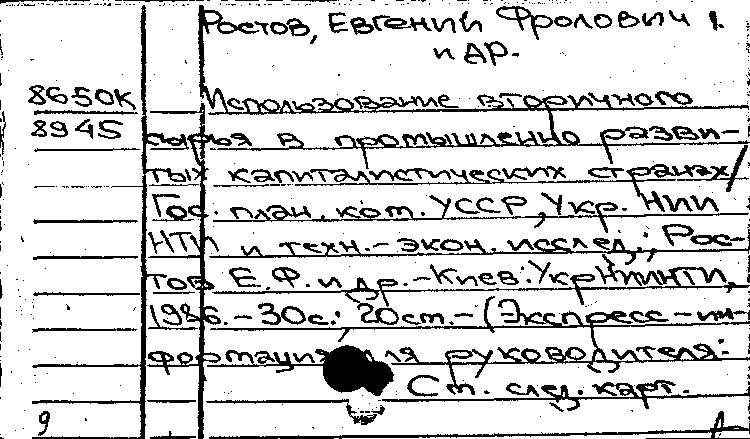 Ростов, Евгений Фролович 1.
и др.
8650К Использование вторичного
8945 сырья в промышленно разви-
тых капиталистических странах/
Гос. план. ком. УССР, Укр. НИИ
НТИ и техн.-экон. исслед.; Рос-
тов Е.Ф. и др.-Киев: УкрНИИНТИ,
1986.-30с.; 20см.-(Экспресс-ин-
формация для руководителя:
См. след. карт.
9